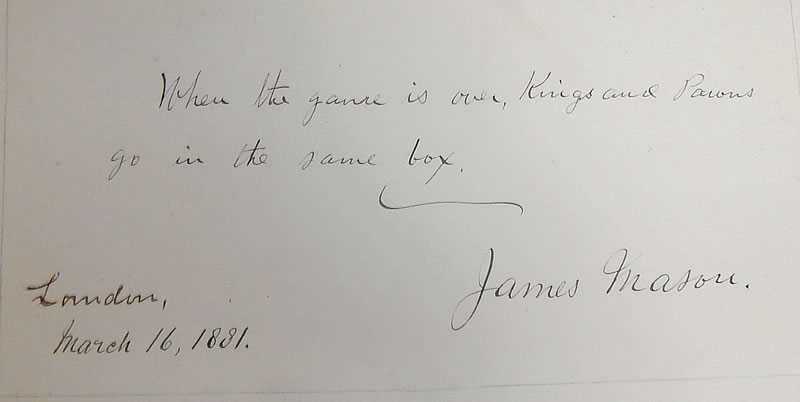 When the game is over, Kings and Pawns
go in the same box.
James Mason.
London,
March 16, 1881.